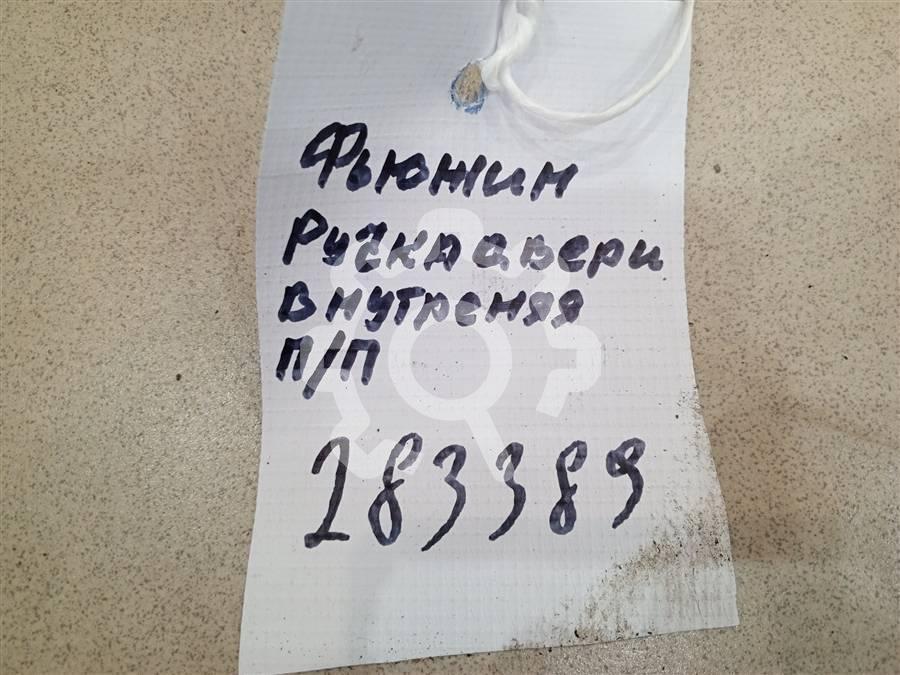 Фьюжин
Ручка двери
внутреняя
п/п
283389